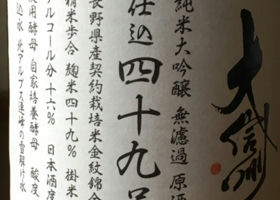 大信州
純米大吟醸 無濾過 原酒
仕込四十九号
長野県産契約栽培米金紋錦
精米歩合 麹米四十九% 掛米
アルコール分十六% 日本酒度
使用酵母 自家培養酵母 酸度
仕込水 北アルプス連峰の雪解け水